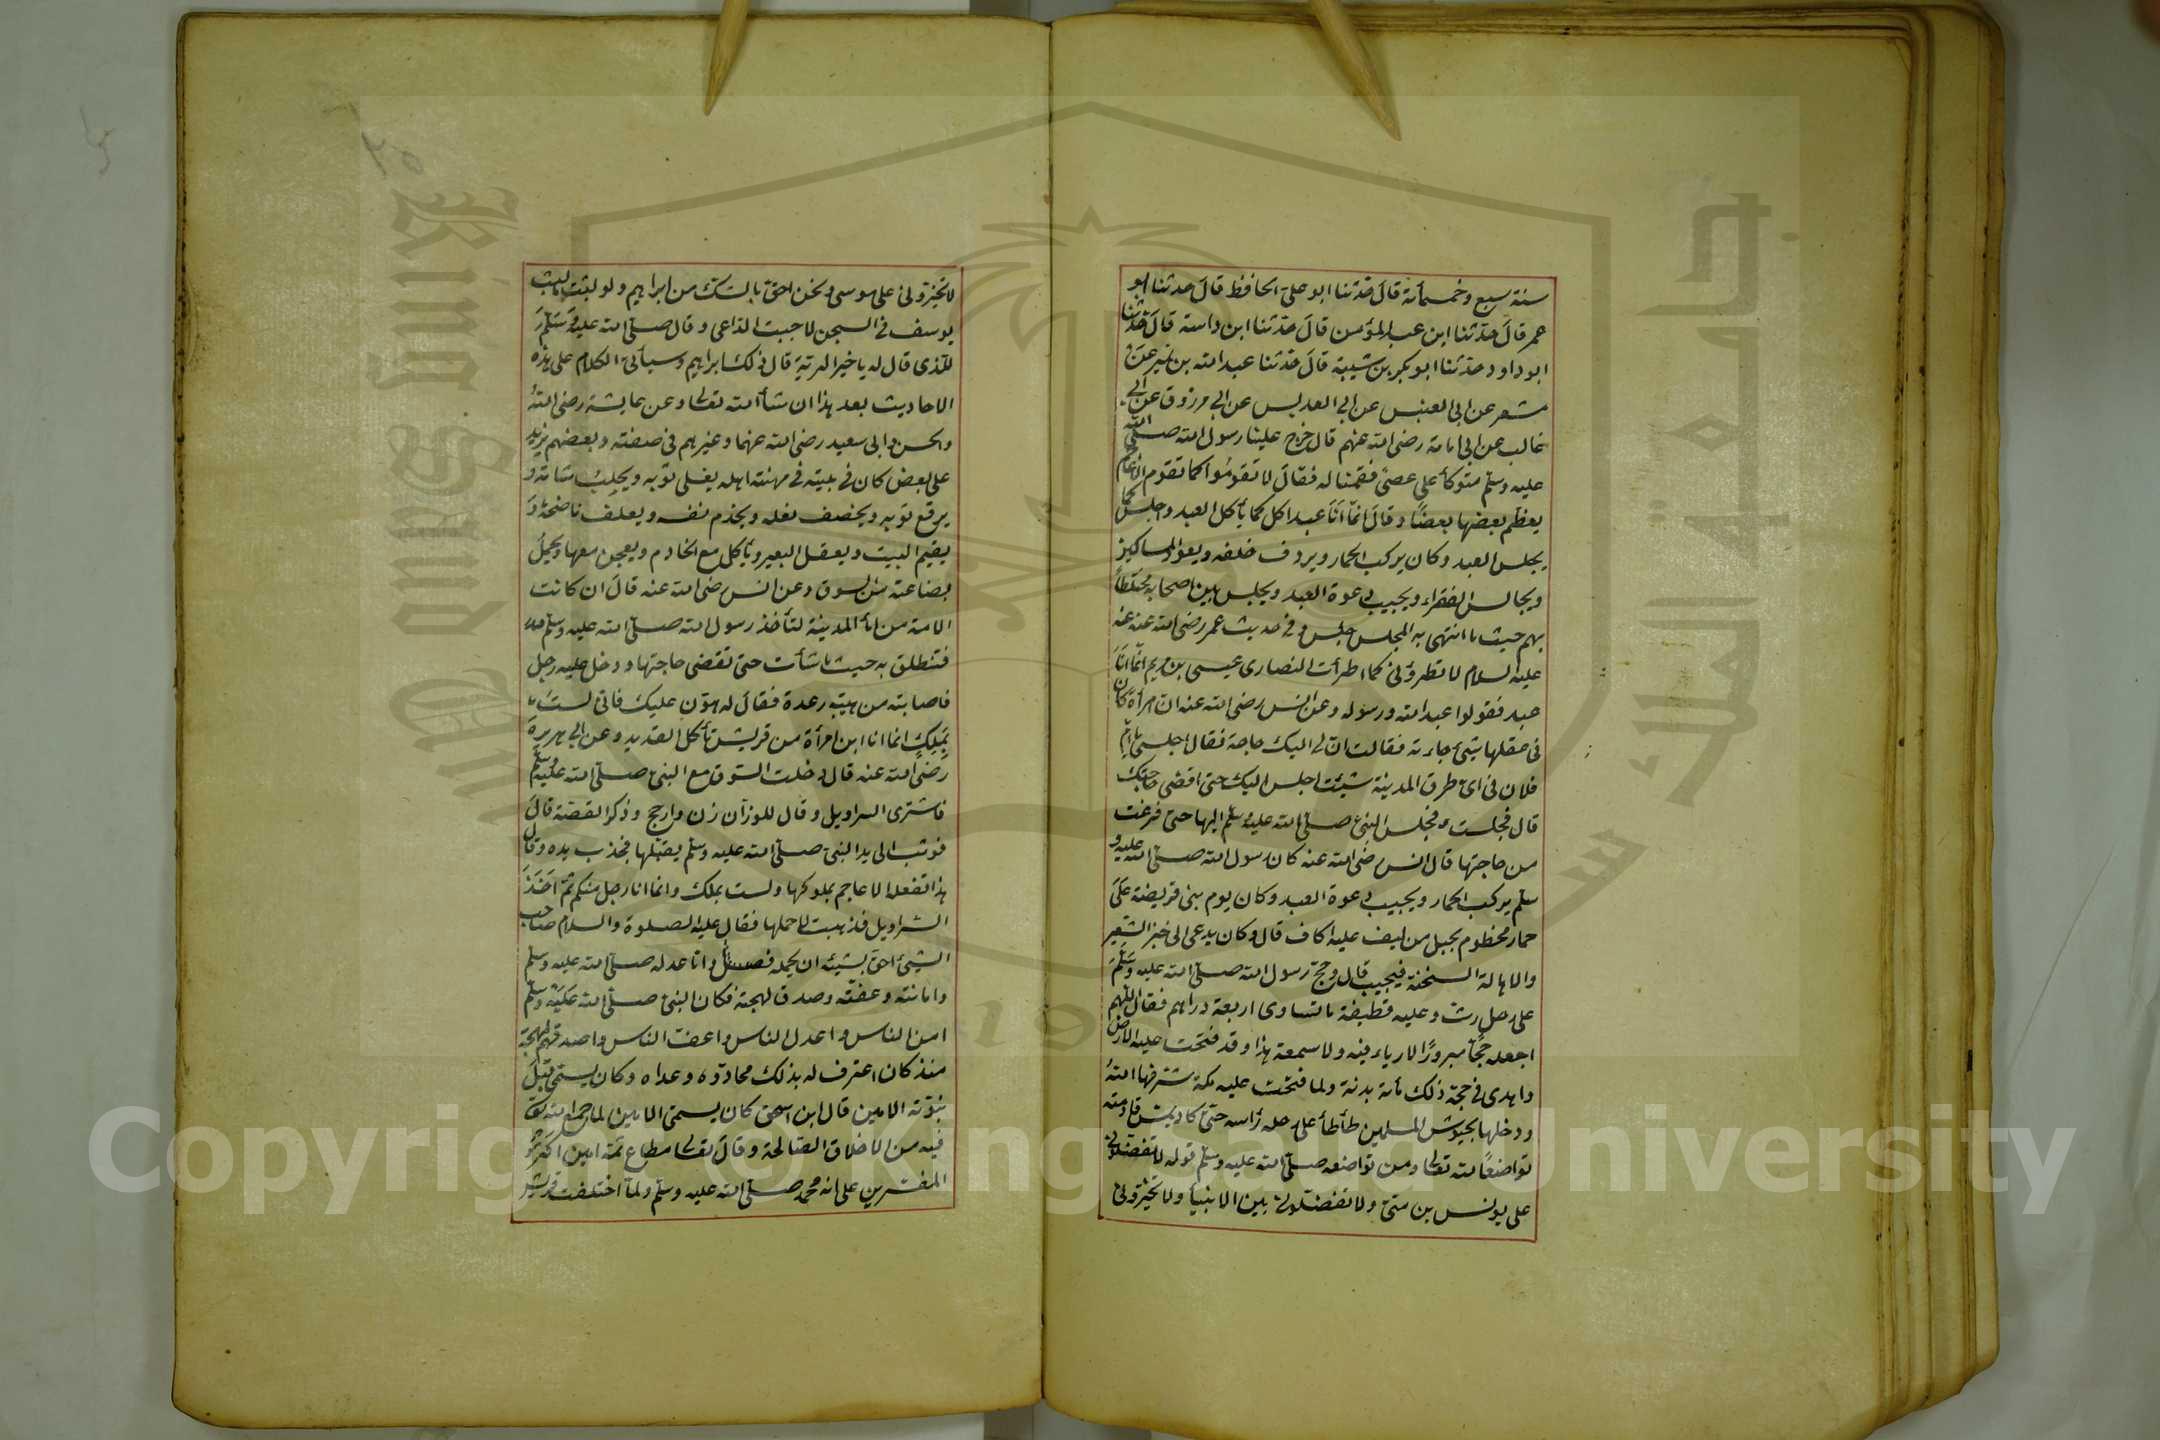 سنة سبع وخمسمأئة قال حدثنا ابو علي الحافظ قال حدثنا ابو
عمر قال حدثنا ابن عبد المؤمن قال حدثنا ابن داسة قال حدثنا
ابو داود حدثنا ابو بكر بن شيبة قال حدثنا عبد الله بن نمير عن
مسعر عن ابي العنبس عن ابي العدبس عن ابي مرزوق عن ابي
غالب عن ابي امامة رضي الله عنهم قال خرج علينا رسول الله صلى الله
عليه وسلم متوكأ على عصىً فقمنا له فقال لا تقوموا كما تقوم الاعاجم
يعظم بعضها بعضًا وقال انما انا عبد اكل كما يأكل العبد واجلس كما
يجلس العبد وكان يركب الحمار ويردف خلفه ويعود المساكين
ويجالس الفقراء ويجيب دعوة العبد ويجلس بين اصحابه مختلطاً
بهم حيث ما انتهى به المجلس جلس وفي حديث عمر رضي الله عنه عنه
عليه السلام لا تطروني كما اطرأت النصارى عيسى بن مريم انما انا
عبد فقولوا عبد الله ورسوله وعن انس رضي الله عنه ان امرأة كان
في عقلها شيئ جاءته فقالت ان لي اليك حاجة فقال اجلسي يا ام
فلان في اي طرق المدينة شيئت اجلس اليك حتى اقضي حاجتك
قال فجلست فجلس النبي صلى الله عليه وسلم اليها حتى فرغت
من حاجتها قال انس رضي الله عنه كان رسول الله صلى الله عليه و
سلم يركب الحمار ويجيب دعوة العبد وكان يوم بني قريضة على
حمار مخطوم بحبل من ليف عليه اكاف قال وكان يدعى الى خبز الشعير
والاهالة السنخنة فيجيب قال وحج رسول الله صلى الله عليه وسلم
على رحل رث وعليه قطيفة ما تساوي اربعة دراهم فقال اللهم
اجعله حجاً مبرورًا لا رياء فيه ولا سمعة هذا وقد فتحت عليه الارض
واهدى في حجة ذلك مأئة بدنة ولما فتحت عليه مكة شرفها الله
ودخلها بجيوش المسلمين طأطأ على رحله رأسه حتى كاد يمس قادمته
تواضعًا لله تعالى ومن تواضعه صلى الله عليه وسلم قوله لا تفضلوني
على يونس بن متى ولا تفضلوا بين الانبيا ولا تخيروني
لا تخيروني على موسى ونحن احق بالشك من ابراهيم ولو لبثت ما لبث
يوسف في السجن لاجبت الداعي وقال صلى الله عليه وسلم
للذي قال له يا خير البرية قال ذلك ابراهيم وسيأتي الكلام على هذه
الاحاديث بعد هذا ان شأ الله تعالى وعن عايشة رضي الله
والحسن وابي سعيد رضي الله عنهما وغيرهم في صفته وبعضهم يزيد
على بعض كان في بيته في مهنة اهله يفلى ثوبه ويحلب شاته و
يرقع ثوبه ويخصف نعله ويخدم نفسه ويعلف ناضحه و
يقيم البيت ويعقل البعير ويأكل مع الخادم ويعجن معها ويحمل
بضاعته من السوق وعن انس رضي الله عنه قال ان كانت
الامة من امأ المدينة لتأخذ رسول الله صلى الله عليه وسلم
فتنطلق به حيث شأت حتى تقضي حاجتها ودخل عليه رجل
فاصابته من هيبته رعدة فقال له هون عليك فاني لست
بملك انما انا ابن امرأة من قريش تأكل القديد وعن ابي هريرة
رضي الله عنه قال دخلت السوق مع النبي صلى الله عليه وسلم
فاشترى السراويل وقال للوزان زن وارجح وذكر القصة قال
فوثب الى يد النبي صلى الله عليه وسلم يقبلها فجذب يده وقال
هذا تفعله الاعاجم بملوكها ولست بملك وانما انا رجل منكم ثم اخذ
السراويل فذهبت لاحملها فقال عليه الصلوة والسلام صاحب
الشيئ احق بشيئه ان يحمله فصل واما عدله صلى الله عليه وسلم
وامانته وعفته وصدق لهجته فكان النبي صلى الله عليه وسلم
امن الناس واعدل الناس واعف الناس واصدقهم لهجة
منذ كان اعترف له بذلك محادوه وعداه وكان يسمى قبل
نبوته الامين قال ابن اسحق كان يسمى الامين لما جمع الله تعالى
فيه من الاخلاق الصالحة وقال تعالى مطاع ثمة امين اكثر
المفسرين على انه محمد صلى الله عليه وسلم ولما اختلفت قريش
Copyright © King Saud University